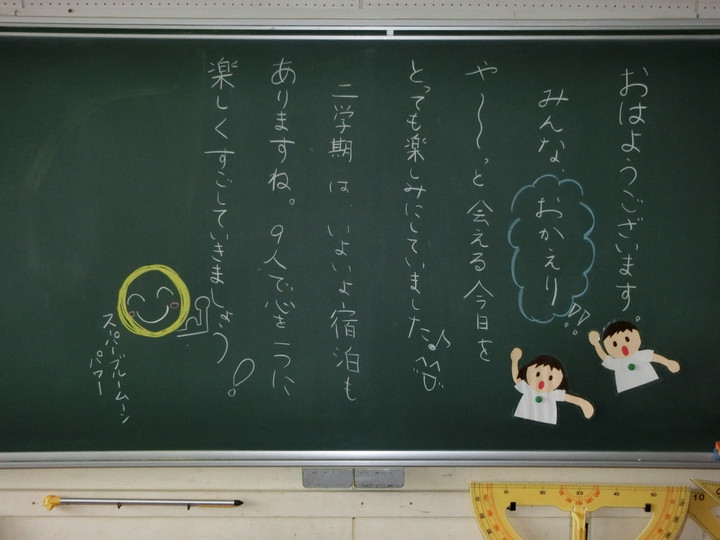 おはようございます。
みんな、おかえり!!
や〜〜っと会える今日を
とっても楽しみにしていました♪
二学期は、いよいよ宿泊も
ありますね。9人で心を一つに
楽しくすごしていきましょう!
スーパーブルームーン
パワー
10 50
10